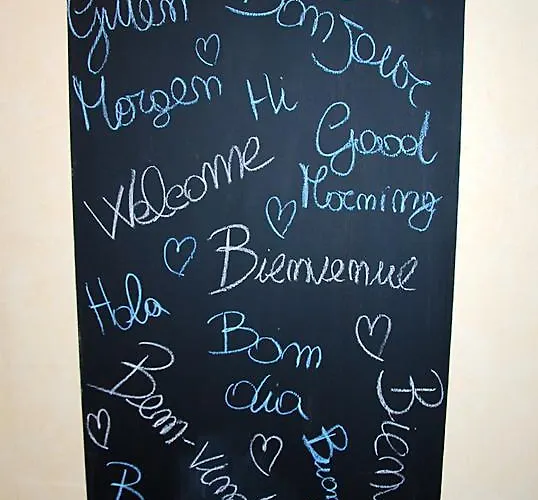 Guten
Bonjour
Morgen
Hi
Good
Morning
Welcome
Bienvenue
Hola
Bom
dia
Bem-